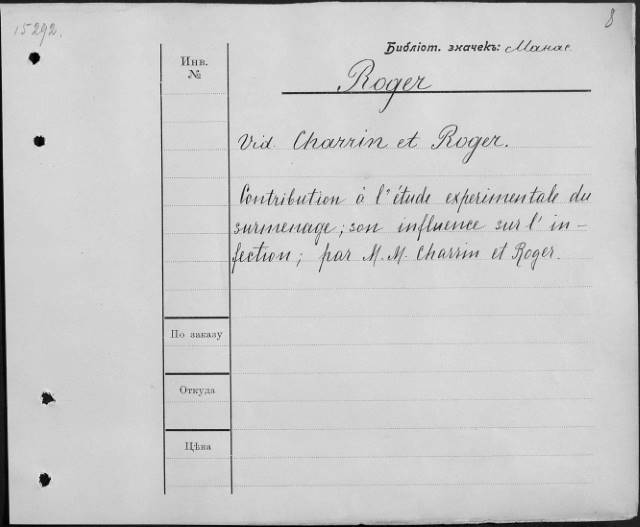 15292.
8
Библіот. значекъ: Манас.
Инв.
№
Roger
Vid. Charrin et Roger.
Contribution à l'étude experimentale du
surmenage; son influence sur l'in-
fection; par M. M. Charrin et Roger.
По заказу
Откуда
Цѣна